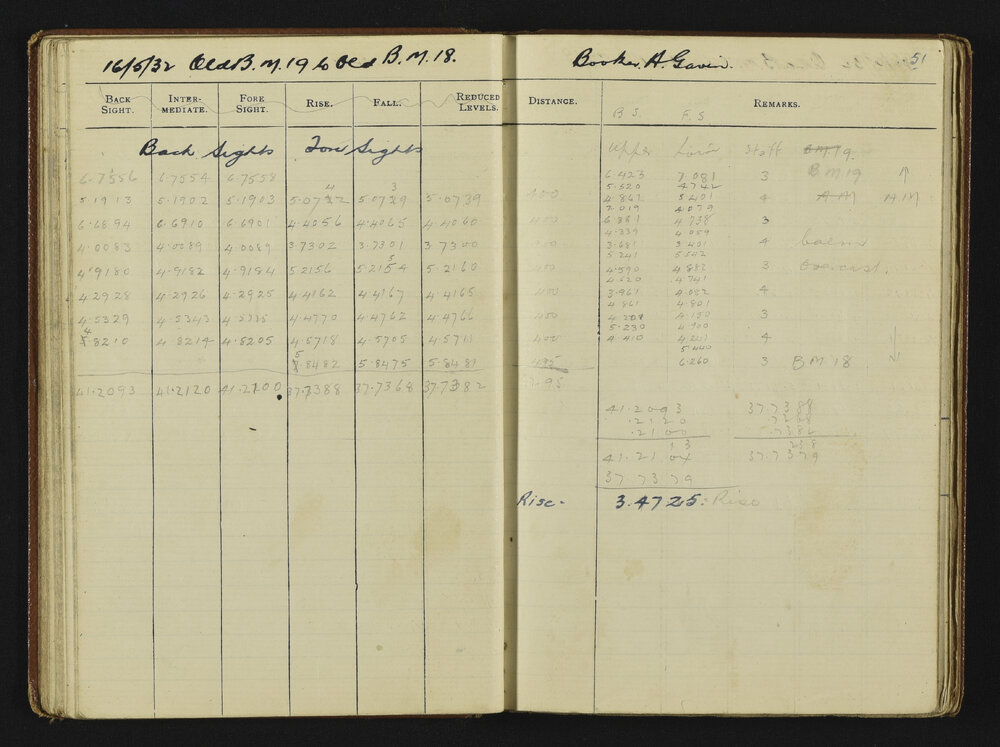 16/5/32 Old B.M. 19 to Old B.M. 18. Booker A. Gavin. 51
BACK SIGHT. INTER-MEDIATE. FORE SIGHT. RISE. FALL. REDUCED LEVELS. DISTANCE. REMARKS.
B S. F. S
Back Sights Fore Sights Upper Staff B M 19.
6.7556 6.7554 6.7558 6.423 7.081 3 B M 19
5.520 4742
5.1913 5.1902 5.1903 5.0739 400 4.862 5.401 4 A.M A.M
6.6894 6.6910 6.6901 4.4056 4.4065 4.4060 400 4.738 3
4.339 4.059
4.0083 4.0089 4.0089 3.7302 3.7301 3.7300 3.681 3.401 4
5.241 5.542
4.9180 4.9182 4.9184 5.2156 5.2154 5.2160 400 4.590 4.883 3 Overcast.
4.620 4.741
4.2928 4.2926 4.2925 4.4162 4.4167 4.4165 400 3.961 4.082 4
4.861 4.801
4.5329 4.5343 4.4770 4.4762 4.4766 400 4.201 4.150 3
5.230 4.900
4.8210 4.8214 4.8205 4.5718 4.5705 4.5711 400 4.410 4.241 4
5.440
5.8482 5.8475 5.8481 435 6.260 3 B M 18
41.2093 41.2120 41.2100 37.7388 37.7368 37.7382
41.2093 37.7388
.2120
.2100 .7382
41.21 37.7379
37.7379
Rise. 3.4725. Rise